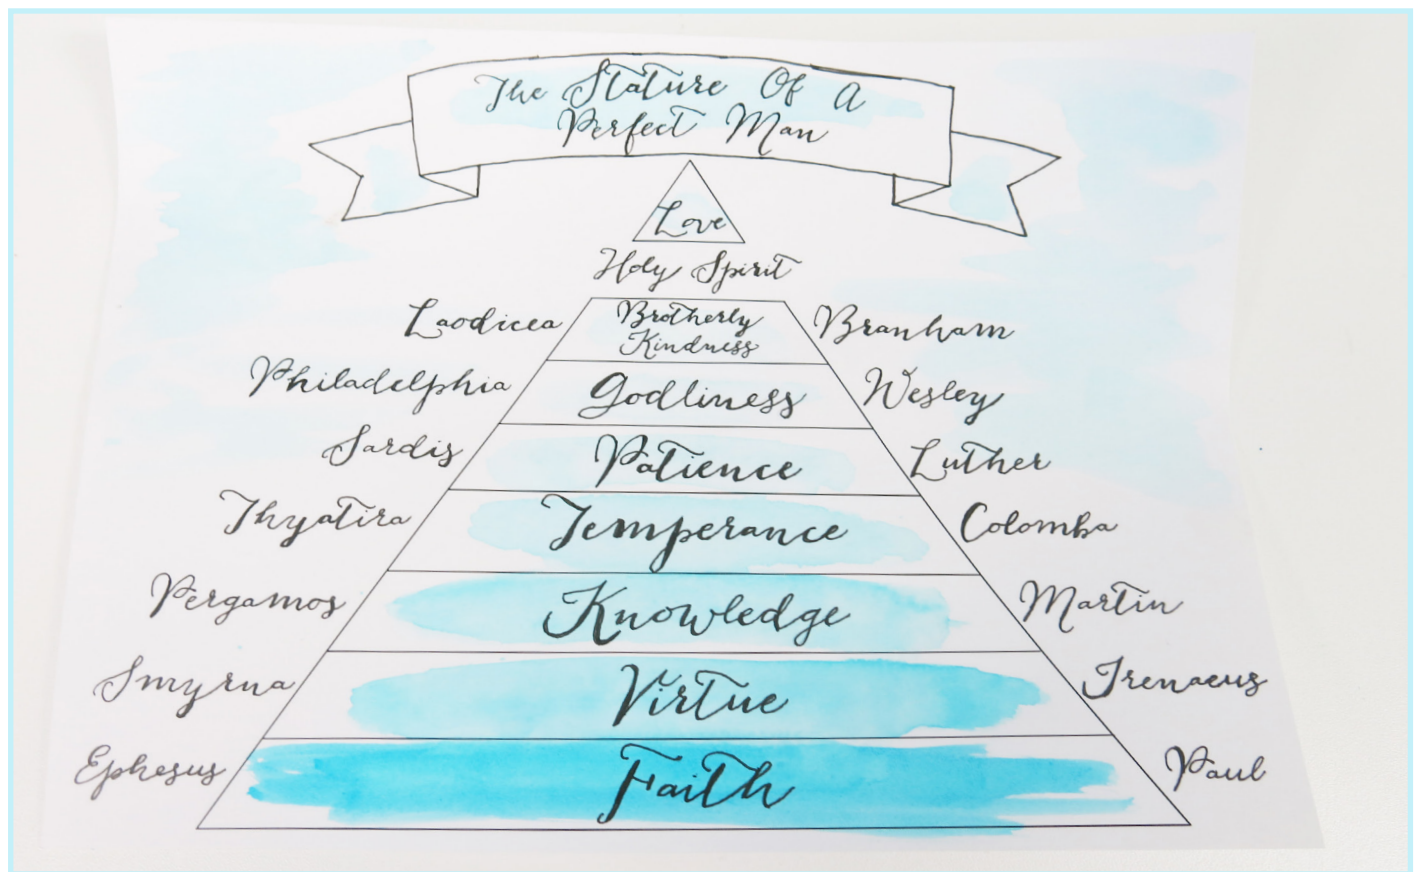 The Stature Of A
Perfect Man
Love
Holy Spirit
Laodicea Brotherly Kindness Branham
Philadelphia Godliness Wesley
Sardis Patience Luther
Thyatira Temperance Colomba
Pergamos Knowledge Martin
Smyrna Virtue Irenaeus
Ephesus Faith Paul